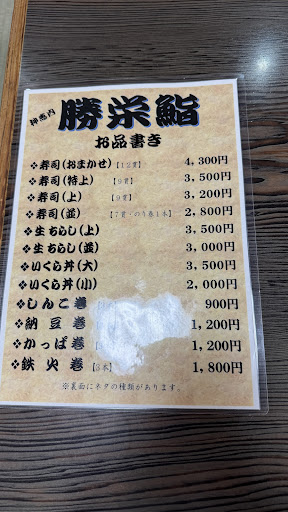 神恵内 勝栄鮨
お品書き
❖寿司(おまかせ)【12貫】 4,300円
❖寿司(特上)【9貫】 3,500円
❖寿司(上)【9貫】 3,200円
❖寿司(並)【7貫・のり巻1本】 2,800円
❖生ちらし(上) 3,500円
❖生ちらし(並) 3,000円
❖いくら丼(大) 3,500円
❖いくら丼(小) 2,000円
❖しんこ巻 900円
❖納豆巻 1,200円
❖かっぱ巻 1,200円
❖鉄火巻【3本】 1,800円
※裏面にネタの種類があります。